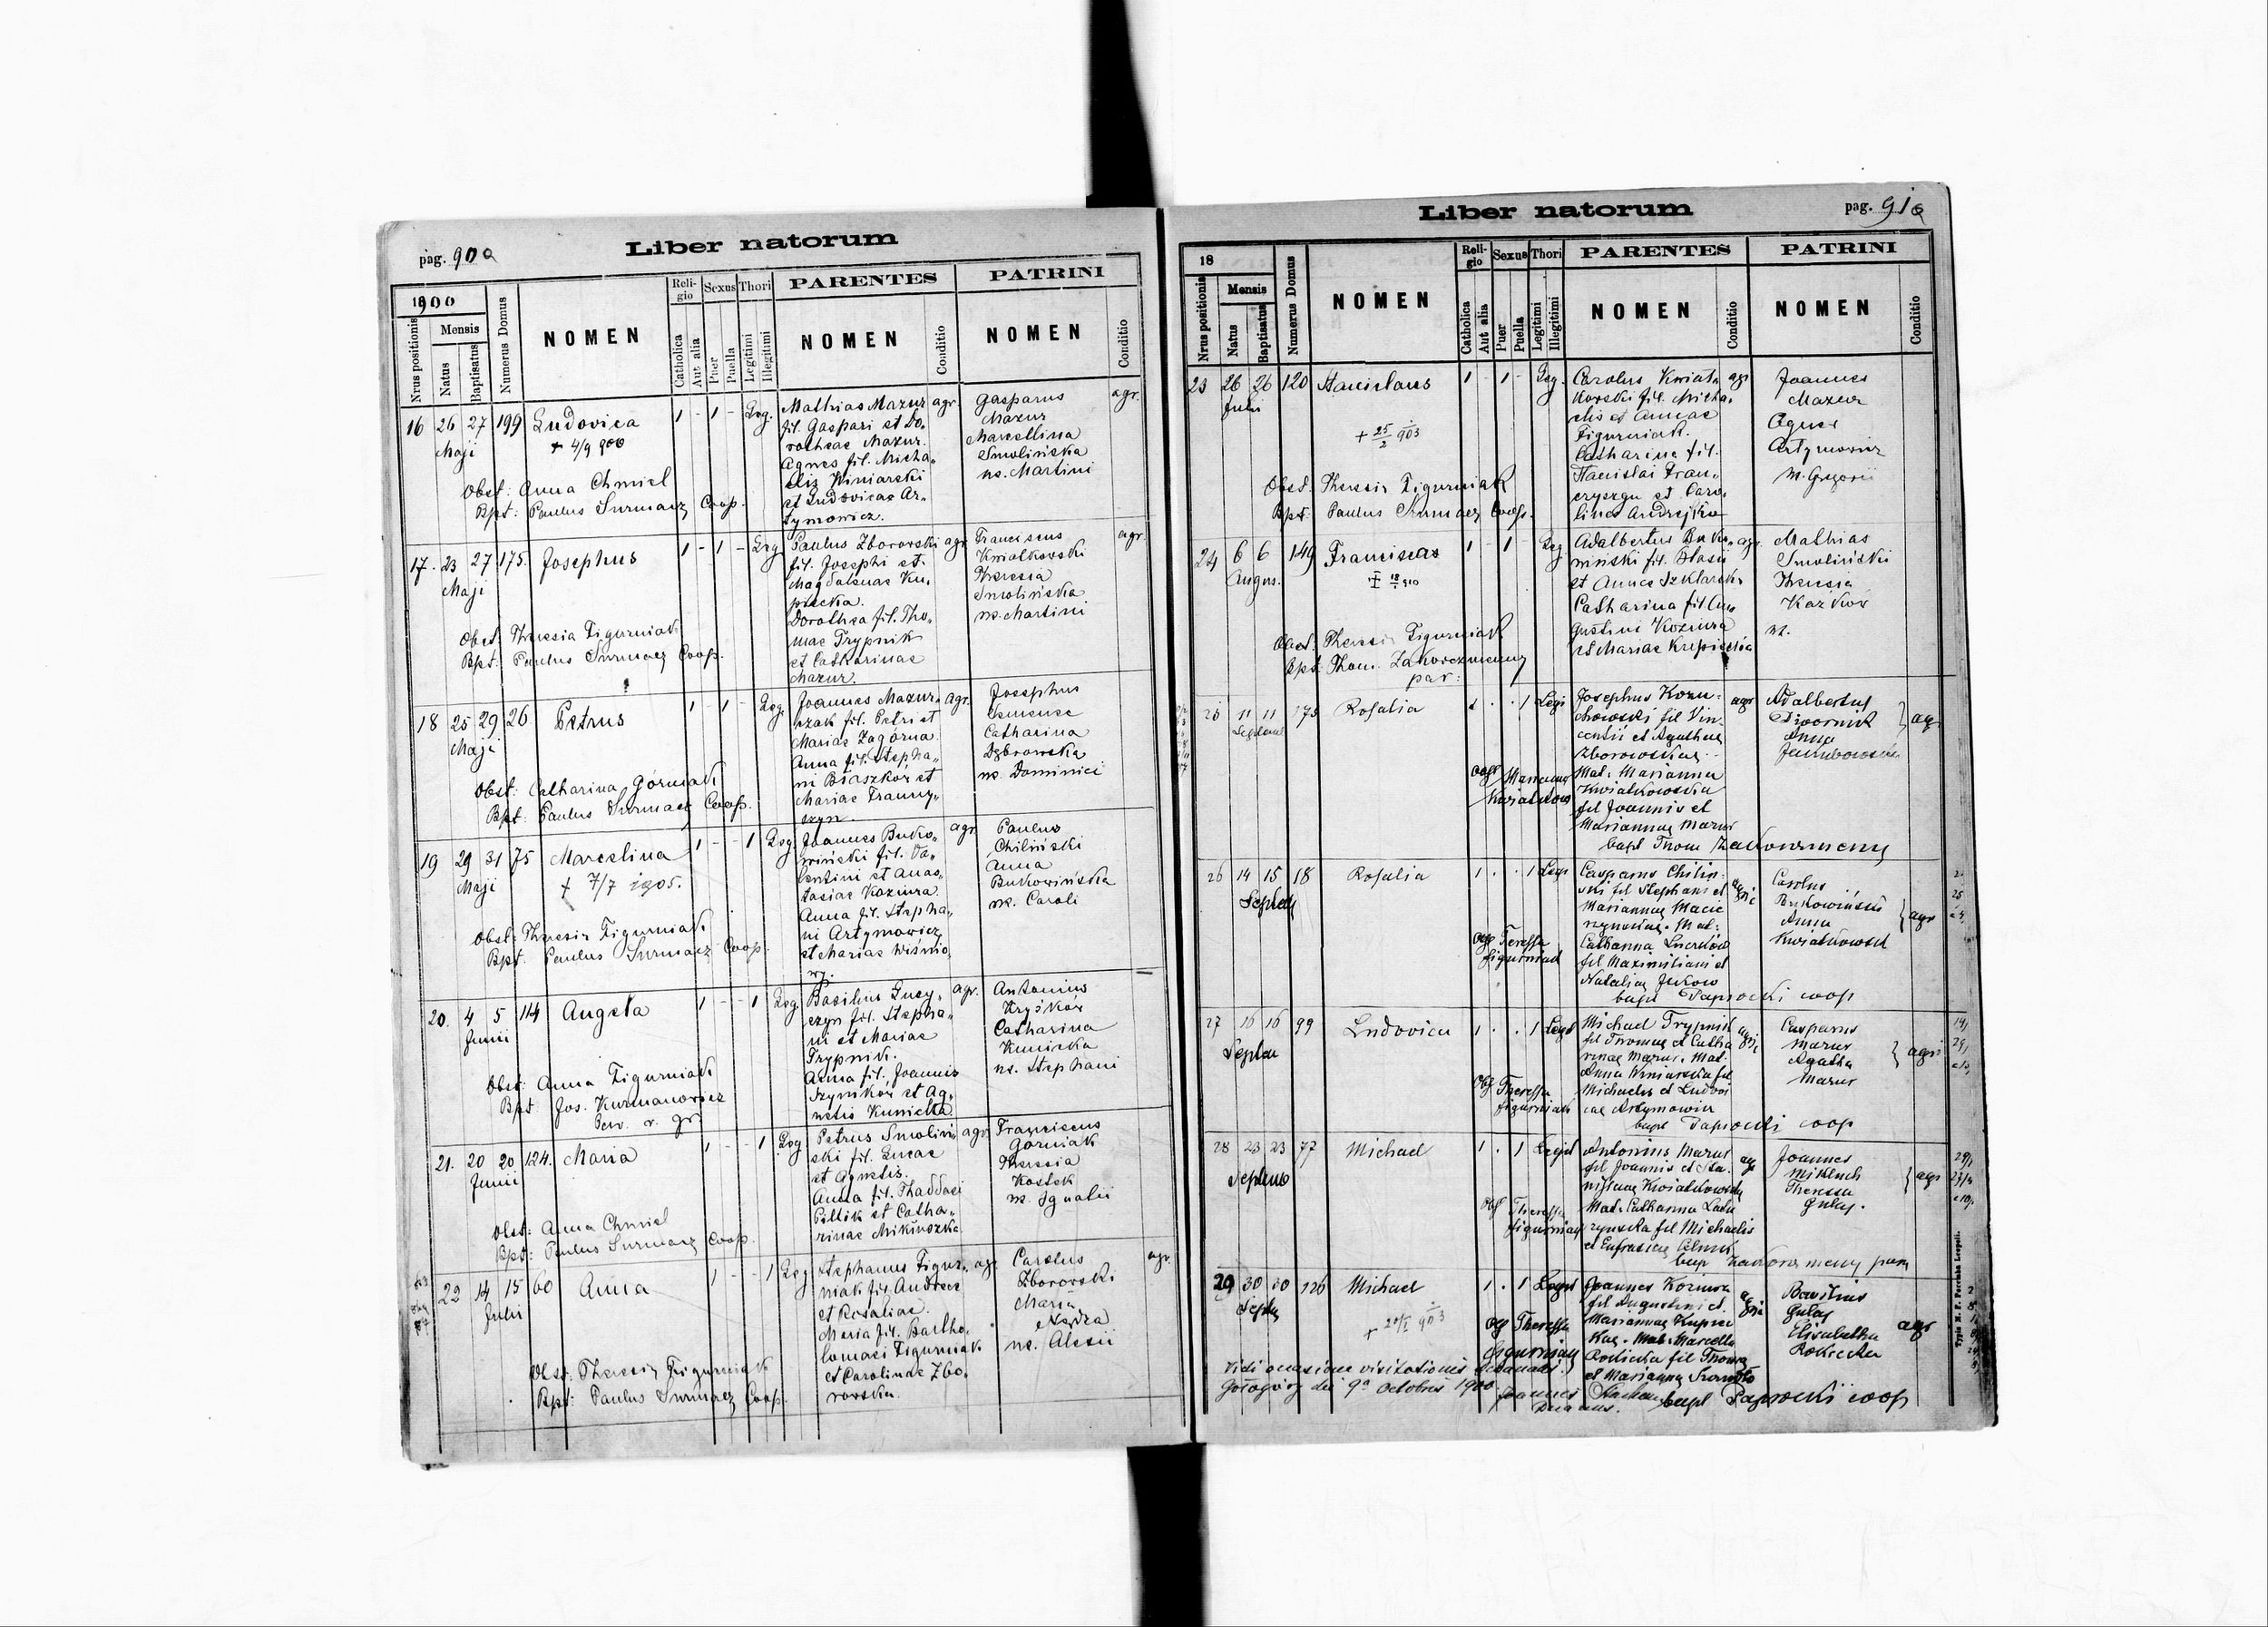 pag. 90a
Liber natorum
1900
Nrus positionis
Mensis
Natus
Baptisatus
Numerus Domus
NOMEN
Religio
Catholica
Aut alia
Sexus
Puer
Puella
Thori
Legitimi
Illegitimi
PARENTES
NOMEN
Conditio
PATRINI
NOMEN
Conditio
16 26 27 199 Ludovica 1 - 1 - Leg.
Maji
+ 4/9 900
Obst: Anna Chmiel
Bpt: Paulus Surmacz Coop.
Mathias Mazur agr.
fil. Gaspari et Do-
rotheae Mazur.
Agnes fil. Micha-
elis Winiarski
et Ludovicae Ar-
tymowicz.
Gasparus agr.
Mazur
Marcellina
Smolińska
ux. Martini
17. 23 27 175. Josephus 1 - 1 - Leg.
Maji
Obst: Theresia Figurniak
Bpt: Paulus Surmacz Coop.
Paulus Zborowski agr.
fil. Josephi et
Magdalenae Ku-
piecka.
Dorothea fil. Tho-
mae Trypnik
et Catharinae
Mazur.
Franciscus agr.
Kwiatkowski
Theresia
Smolińska
ux. Martini
18 25 29 26 Petrus 1 - 1 - Leg.
Maji
Obst: Catharina Górniak
Bpt: Paulus Surmacz Coop.
Joannes Mazur- agr.
czak fil. Petri et
Mariae Zagórna.
Anna fil. Stepha-
ni Błaszków et
Mariae Franny-
szyn.
Josephus
Catharina
Dąbrowska
ux. Dominici
19 29 31 75 Marcelina 1 - - 1 Leg.
Maji
+ 7/7 1905.
Obst: Theresia Figurniak
Bpt. Paulus Surmacz Coop.
Joannes Buko- agr.
wiński fil. Va-
lentini et Anas-
tasiae Koziura
Anna fil. Stepha-
ni Artymowicz
et Mariae Wiśnio-
wy.
Paulus
Chiliński
Anna
Bukowińska
ux. Caroli
20. 4 5 114 Angela 1 - - 1 Leg
Junii
Obst: Anna Figurniak
Bpt Jos. Kurmanowicz
Par. r. gr.
Basilius Hucy- agr.
czyn fil. Stepha-
ni et Mariae
Trypnik.
Anna fil. Joannis
Szynków et Ag-
netis Kunicka
Antonius
Kryśków
Catharina
Kunicka
ux. Stephani
21. 20 20 124. Maria 1 - - 1 Leg
Junii
Obst: Anna Chmiel
Bpt: Paulus Surmacz Coop.
Petrus Smoliń- agr.
ski fil. Lucae
et Agnetis.
Anna fil. Thaddaei
Peltik et Catha-
rinae Mikluszka.
Franciscus
Górniak
Theresia
Kostek
ux. Ignatii
22 14 15 60 Anna 1 - - 1 Leg
Julii
Obst: Theresia Figurniak
Bpt: Paulus Surmacz Coop.
Stephanus Figur- agr.
niak fil. Andreae
et Rosaliae.
Maria fil. Bartho-
lomaei Figurniak
et Carolinae Zbo-
rowska.
Carolus agr.
Zborowski
Maria
Nędza
ux. Alexii
Liber natorum
pag. 91a
18
Nrus positionis
Mensis
Natus
Baptisatus
Numerus Domus
NOMEN
Religio
Catholica
Aut alia
Sexus
Puer
Puella
Thori
Legitimi
Illegitimi
PARENTES
NOMEN
Conditio
PATRINI
NOMEN
Conditio
23 26 26 120 Stanislaus 1 - 1 - Leg.
Julii
+ 25/2 903
Obst. Theresia Figurniak
Bpt: Paulus Surmacz Coop.
Carolus Kwiat- agr
kowski fil. Micha-
elis et Annae
Figurniak.
Catharina fil.
Stanislai Fran-
czyszyn et Caro-
linae Andrejków
Joannes
Mazur
Agnes
Artymowicz
ux. Gregorii
24 6 6 149 Franciscus 1 - 1 - Leg
Augus.
18 910
Obst: Theresia Figurniak
Bpt: Thom. Zakorczmenny
par.
Adalbertus Buko- agr.
wiński fil. Blasii
et Annae Szklarsk-
Catharina fil. Au-
gustini Koziura
et Mariae Krepisciów
Mathias
Smoliński
Theresia
Kaźków
ux.
25 11 11 175 Rosalia 1 . . 1 Legi
Septem
Marianna
Kwiatkows
Josephus Kozu- agr
chowski fil Vin-
centii et Agathae
Zborowskae.
Mat: Marianna
Kwiatkowska
fil Joannis et
Mariannae Mazur
bapt Thom Zakorczmenny
Adalbertus
Dwornik
Anna
agr
26 14 15 18 Rosalia 1 . . 1 Legi
Septem
Theressa
figurniak
Casparus Chilin-
ski fil Stephani et
Mariannae Macie
Mat:
Catharina
fil Maximiliani et
Nataliae Jukow
bapt Paprocki coop
Carolus
Bukowiński
Anna
Kwiatkowsk
agr
27 16 16 99 Ludovica 1 . . 1 Legi
Septem
Theressa
figurniak
Michael Trypnik
fil Thomae et Catha
rinae Mazur. Mat.
Anna Winiarska fil
Michaelis et Ludovi
cae Artymowicz
bapt Paprocki coop
Casparus
Mazur
Agatha
Mazur
agri
28 23 23 77 Michael 1 . 1 Legit
Septemb
Theressa
figurniak
Antonius Mazur
fil Joannis et Sta-
nislaae Kwiatkowska
Mat: Catharina
fil Michaelis
et Eufrasiae
bapt Zakorczmenny par
Joannes
Mikluch
Theressa
Gulag.
agr
29 30 30 126 Michael 1 . 1 Legit
Septem
903
Theressa
figurniak
Joannes Koziura
fil Augustini et
Mariannae Kupiec
kae. Mat: Marcella
Rokicka fil Thoma
et Marianna
bapt Paprocki coop
Basilius
Gulag
Elisabetha
Rokicka
agr
Vidi occasione visitationis decanalis
Gołogóry die 9a Octobris 1900
Joannes
Decanus.